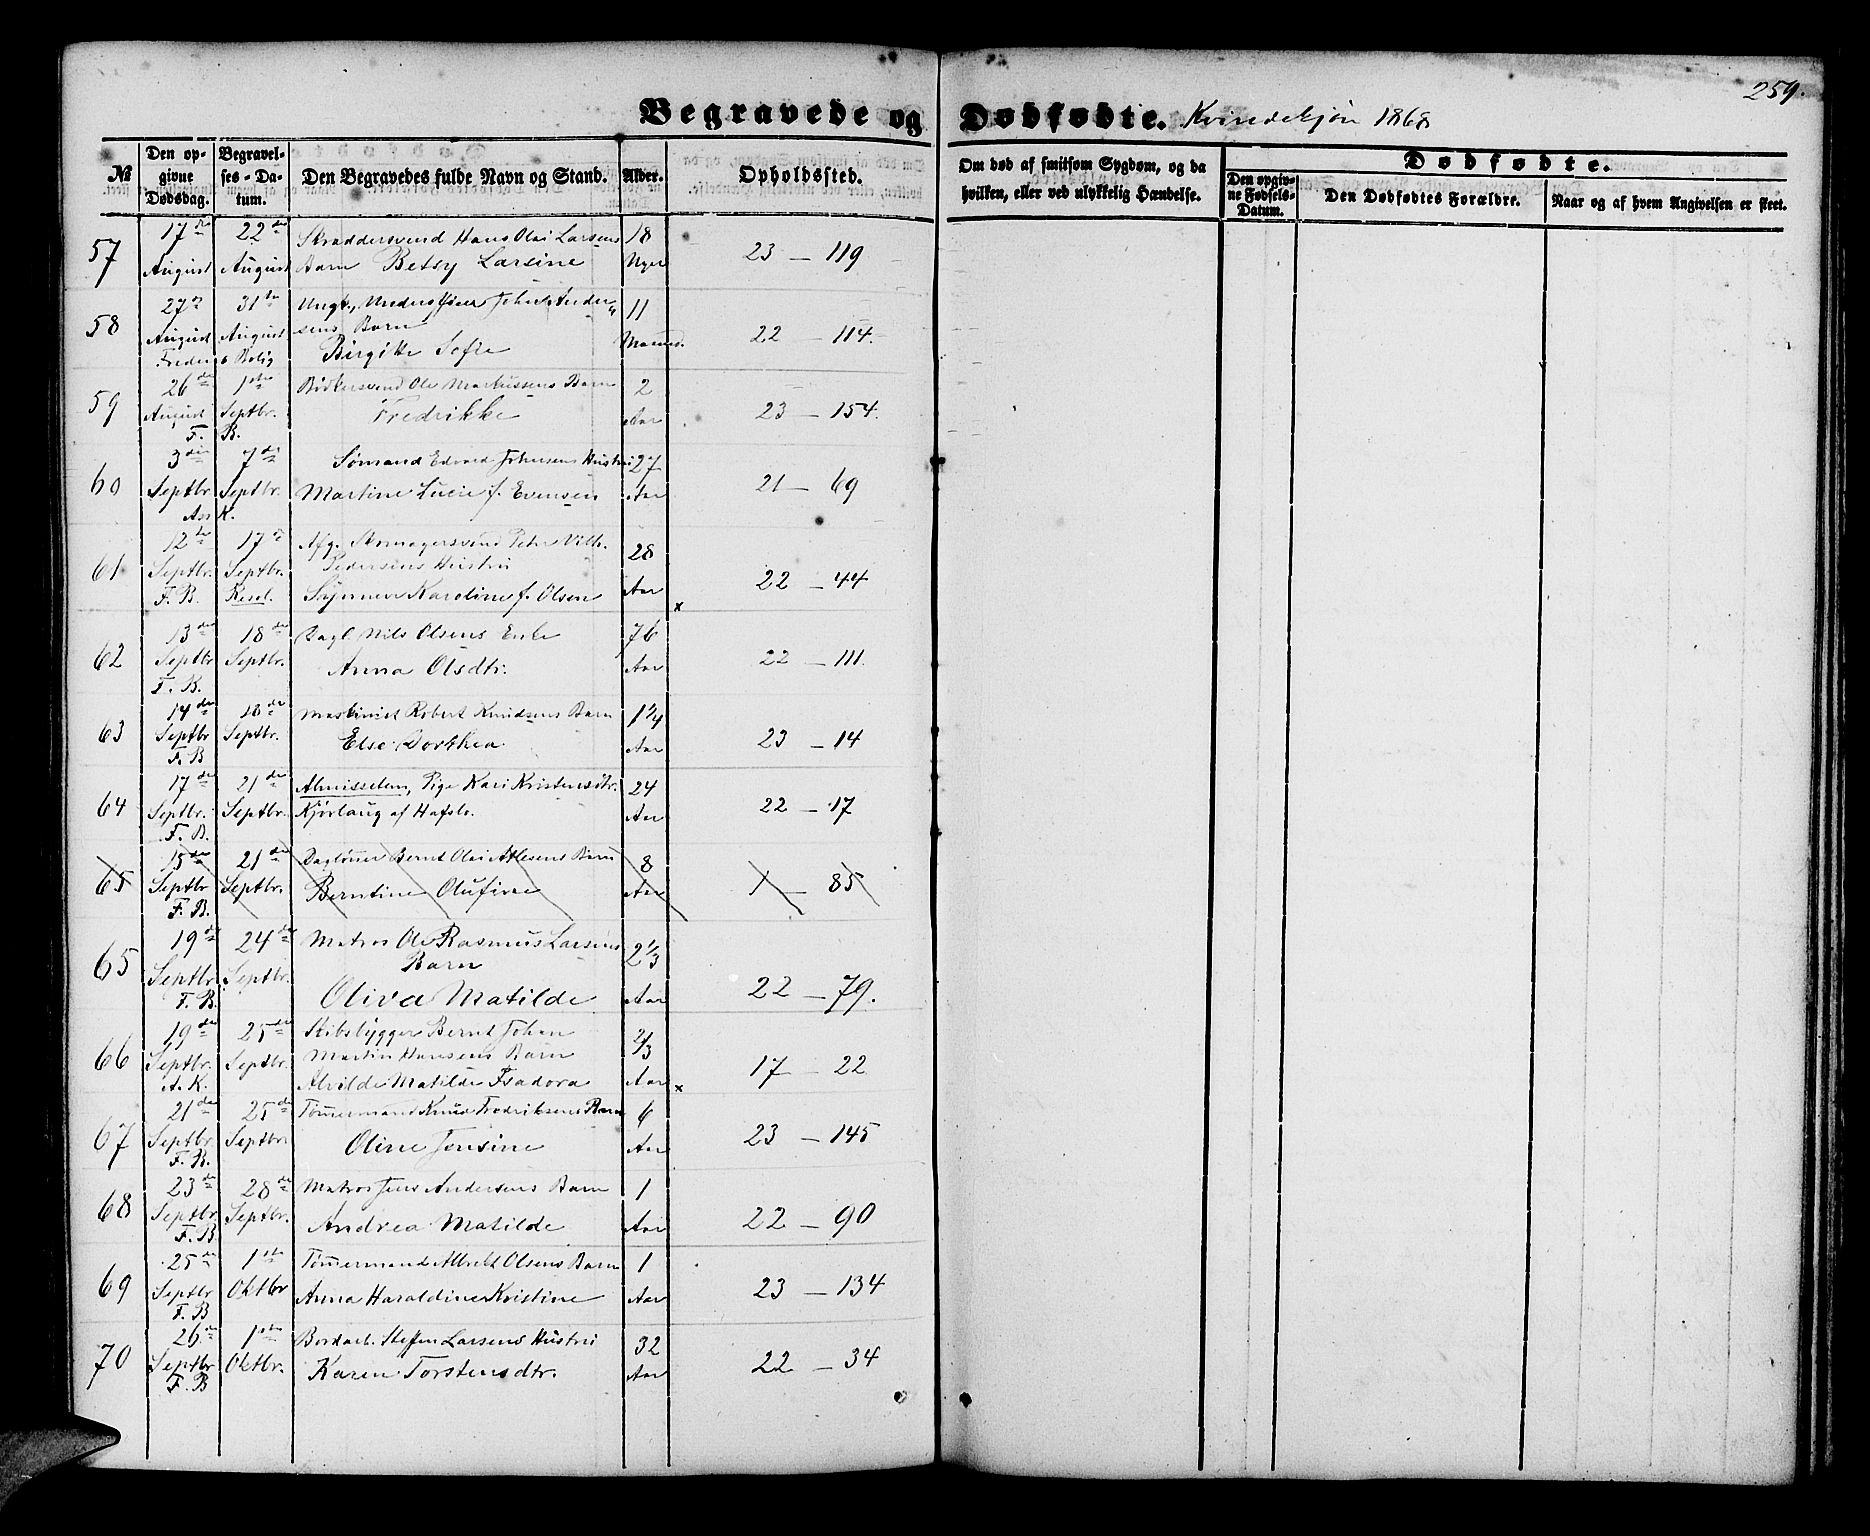 Begravede og Dødfødte. Kvindekjøn 1868
259.
№
Den opgivne Dødsdag.
Begravelses-Datum.
Den Begravedes fulde Navn og Stand.
Alder.
Opholdssted.
Om død af smitsom Sygdom, og da hvilken, eller ved ulykkelig Hændelse.
Dødfødte.
Den opgivne Fødsels-Datum.
Den Dødfødtes Forældre.
Naar og af hvem Angivelsen er skeet.
57 17de August 22de August Skræddersvend Hans Olai Larsens 18
Barn Betsy Larsine Uger 23 — 119
58 27de August 31te August Johs Andersens Barn 11
Birgitte Sofie Maaned. 22 — 114.
59 26de August 1ste Septbr. Bødkersvend Ole Markussens Barn 2
Fredrikke Aar 23 — 154.
F. B.
60 3die Septbr 7de Septbr. Sømand Edvard Johnsens Hustru 27
Martine Lucie f. Evensen Aar 21 — 69
K.
61 12te Septbr. 17de Septbr. Afg. Skomagersvend Peter Vilh. 28
Pedersens Hustru
F. B. Karoline f. Olsen Aar 22 — 44
x
62 13de Septbr 18de Septbr. Dagl. Nils Olsens Enke 76
Anna Olsdtr. Aar 22 — 111.
F. B.
63 14de Septbr 18de Septbr. Maskinist Robert Knudsens Barn 1 1/4
Else Dorthea Aar 23 — 14
F. B
64 17de Septbr. 21de Septbr. Almisselem, Pige Kari Kristensdtr. 24
Kjørlaug af Hafslo. Aar 22 — 17
F. B.
65 15de Septbr 21de Septbr. Dagløner Bernt Olai Atlesens Barn 8
Berntine Olufine Aar 1 — 85
F. B.
65 19de Septbr 24de Septbr. Matros Ole Rasmus Larsens 2 1/3
Barn
Oliva Matilde Aar 22 — 79.
F. B.
66 19de Septbr. 25de Septbr. Skibsbygger Bernt Johan 2/3
Martin Hansens Barn
Alvilde Matilde Isadora Aar 17 — 22
A. K. x
67 21de Septbr 25de Septbr Tømmermand Knud Fredriksens Barn 6
Oline Jensine Aar 23 — 145
F. B.
68 23de Septbr 28de Septbr. Matros Jens Andersens Barn 1
Andrea Matilde Aar 22 — 90
F. B
69 25de Septbr 1ste Oktbr Tømmermand Albrekt Olsens Barn 1
Anna Haraldine Kristine Aar 23 — 134
F. B
70 26de Septbr 1ste Oktbr. Bordarb. Steffen Larsens Hustru 32
Karen Torstensdtr. Aar 22 — 34
F. B